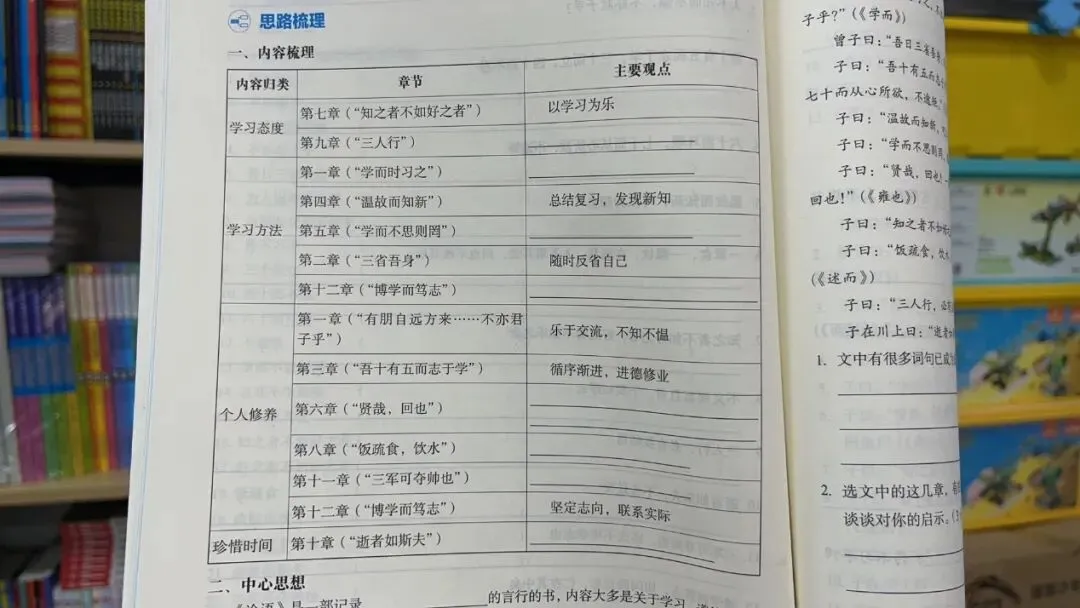 思路梳理
一、内容梳理
内容归类 章节 主要观点
学习态度 第七章（“知之者不如好之者”） 以学习为乐
第九章（“三人行”）
学习方法 第一章（“学而时习之”）
第四章（“温故而知新”） 总结复习，发现新知
第五章（“学而不思则罔”）
第二章（“三省吾身”） 随时反省自己
第十二章（“博学而笃志”）
个人修养 第一章（“有朋自远方来……不亦君
子乎”） 乐于交流，不知不愠
第三章（“吾十有五而志于学”） 循序渐进，进德修业
第六章（“贤哉，回也”）
第八章（“饭疏食，饮水”）
第十一章（“三军可夺帅也”）
第十二章（“博学而笃志”） 坚定志向，联系实际
珍惜时间 第十章（“逝者如斯夫”）
二、中心思想
《论语》是一部记录 的言行的书，内容大多是关于学习
子乎？”（《学而》）
曾子曰：“吾日三省吾身
子曰：“吾十有五而志于
七十而从心所欲，不逾矩
子曰：“温故而知新，
子曰：“学而不思则罔，
子曰：“贤哉，回也！一
回也！”（《雍也》）
子曰：“知之者不如好
子曰：“饭疏食，饮水
（《述而》）
子曰：“三人行，必
子在川上曰：“逝者
1. 文中有很多词句已成
2. 选文中的这几章，
谈谈对你的启示。（3